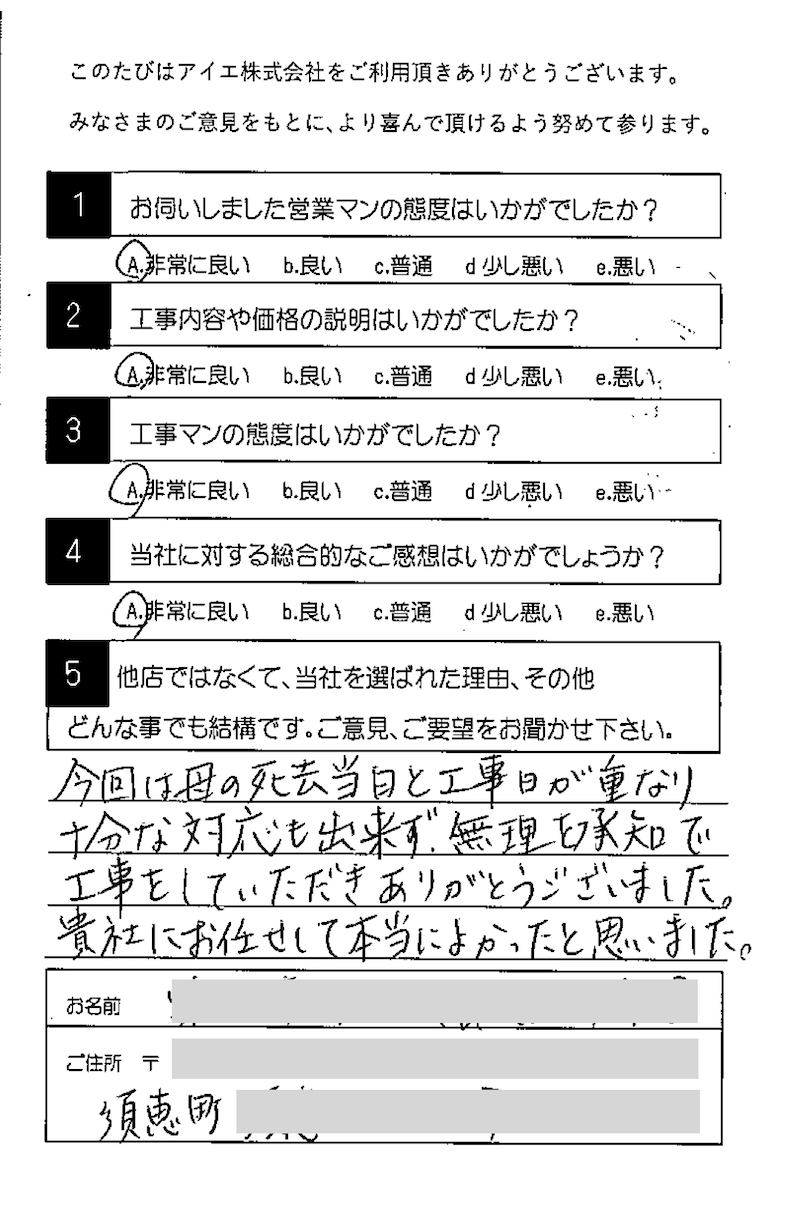 このたびはアイエ株式会社をご利用頂きありがとうございます。
みなさまのご意見をもとに、より喜んで頂けるよう努めて参ります。
1 お伺いしました営業マンの態度はいかがでしたか？
A.非常に良い b.良い c.普通 d 少し悪い e.悪い
2 工事内容や価格の説明はいかがでしたか？
A.非常に良い b.良い c.普通 d 少し悪い e.悪い
3 工事マンの態度はいかがでしたか？
A.非常に良い b.良い c.普通 d 少し悪い e.悪い
4 当社に対する総合的なご感想はいかがでしょうか？
A.非常に良い b.良い c.普通 d 少し悪い e.悪い
5 他店ではなくて、当社を選ばれた理由、その他
どんな事でも結構です。ご意見、ご要望をお聞かせ下さい。
今回は母の死去当日と工事日が重なり
十分な対応も出来ず、無理を承知で
工事をしていただきありがとうございました。
貴社にお任せして本当によかったと思いました。
お名前
ご住所 〒
須恵町